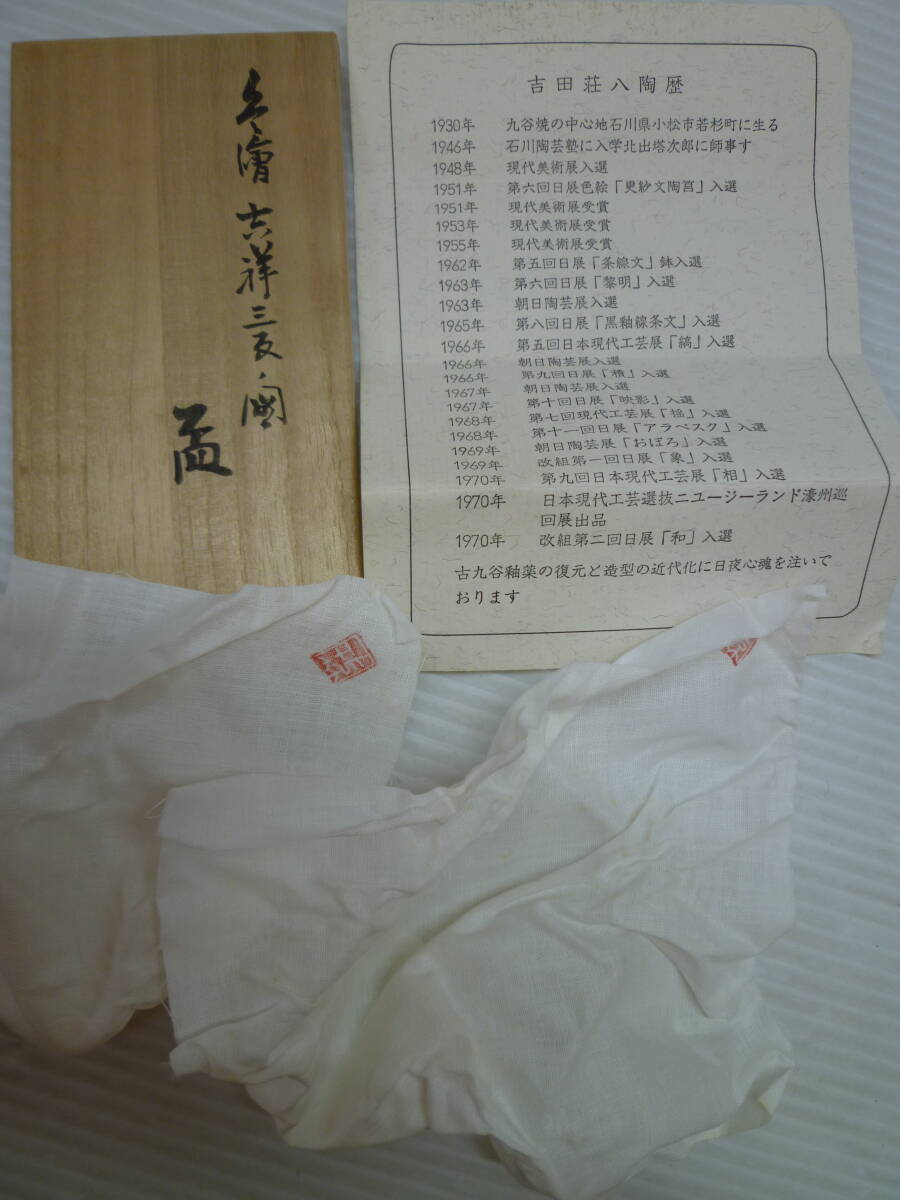 色繪 吉祥三友ノ圖
盃
吉田荘八陶歴
1930年 九谷焼の中心地石川県小松市若杉町に生る
1946年 石川陶芸塾に入学北出塔次郎に師事す
1948年 現代美術展入選
1951年 第六回日展色絵「更紗文陶筥」入選
1951年 現代美術展受賞
1953年 現代美術展受賞
1955年 現代美術展受賞
1962年 第五回日展「条線文」鉢入選
1963年 第六回日展「黎明」入選
1963年 朝日陶芸展入選
1965年 第八回日展「黒釉線条文」入選
1966年 第五回日本現代工芸展「縞」入選
1966年 朝日陶芸展入選
1966年 第九回日展「積」入選
1967年 朝日陶芸展入選
1967年 第十回日展「映影」入選
1968年 第七回現代工芸展「揺」入選
1968年 第十一回日展「アラベスク」入選
1969年 朝日陶芸展「おぼろ」入選
1969年 改組第一回日展「象」入選
1970年 第九回日本現代工芸展「相」入選
1970年 日本現代工芸選抜ニュージーランド濠州巡
回展出品
1970年 改組第二回日展「和」入選
古九谷釉薬の復元と造型の近代化に日夜心魂を注いで
おります